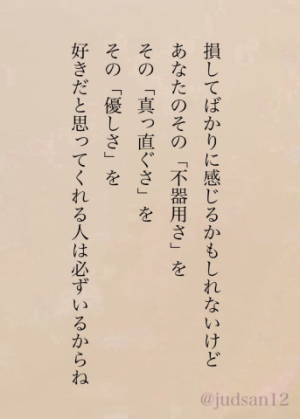 損してばかりに感じるかもしれないけど
あなたのその「不器用さ」を
その「真っ直ぐさ」を
その「優しさ」を
好きだと思ってくれる人は必ずいるからね
@judsan12